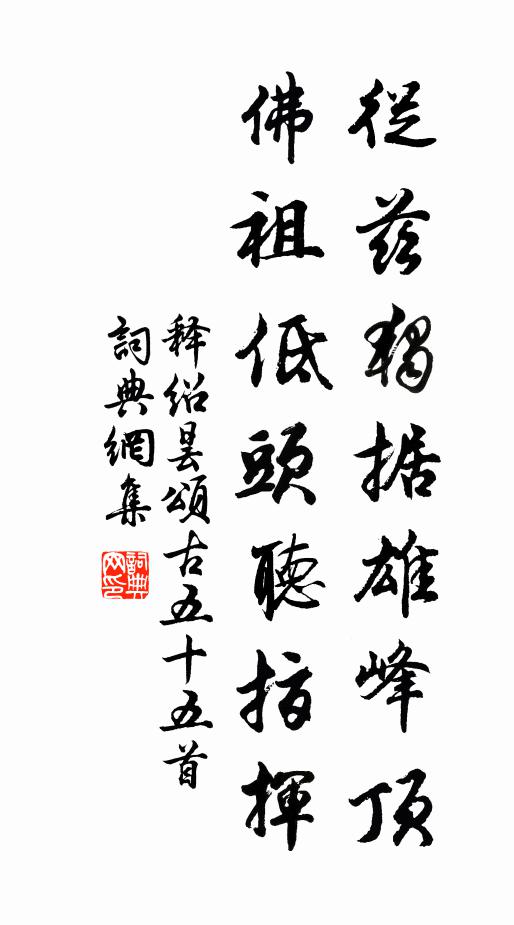 從茲獨据雄峰頂
佛祖低頭聽指揮
释紹曇頌古五十五首
詞典網集
詞典網印